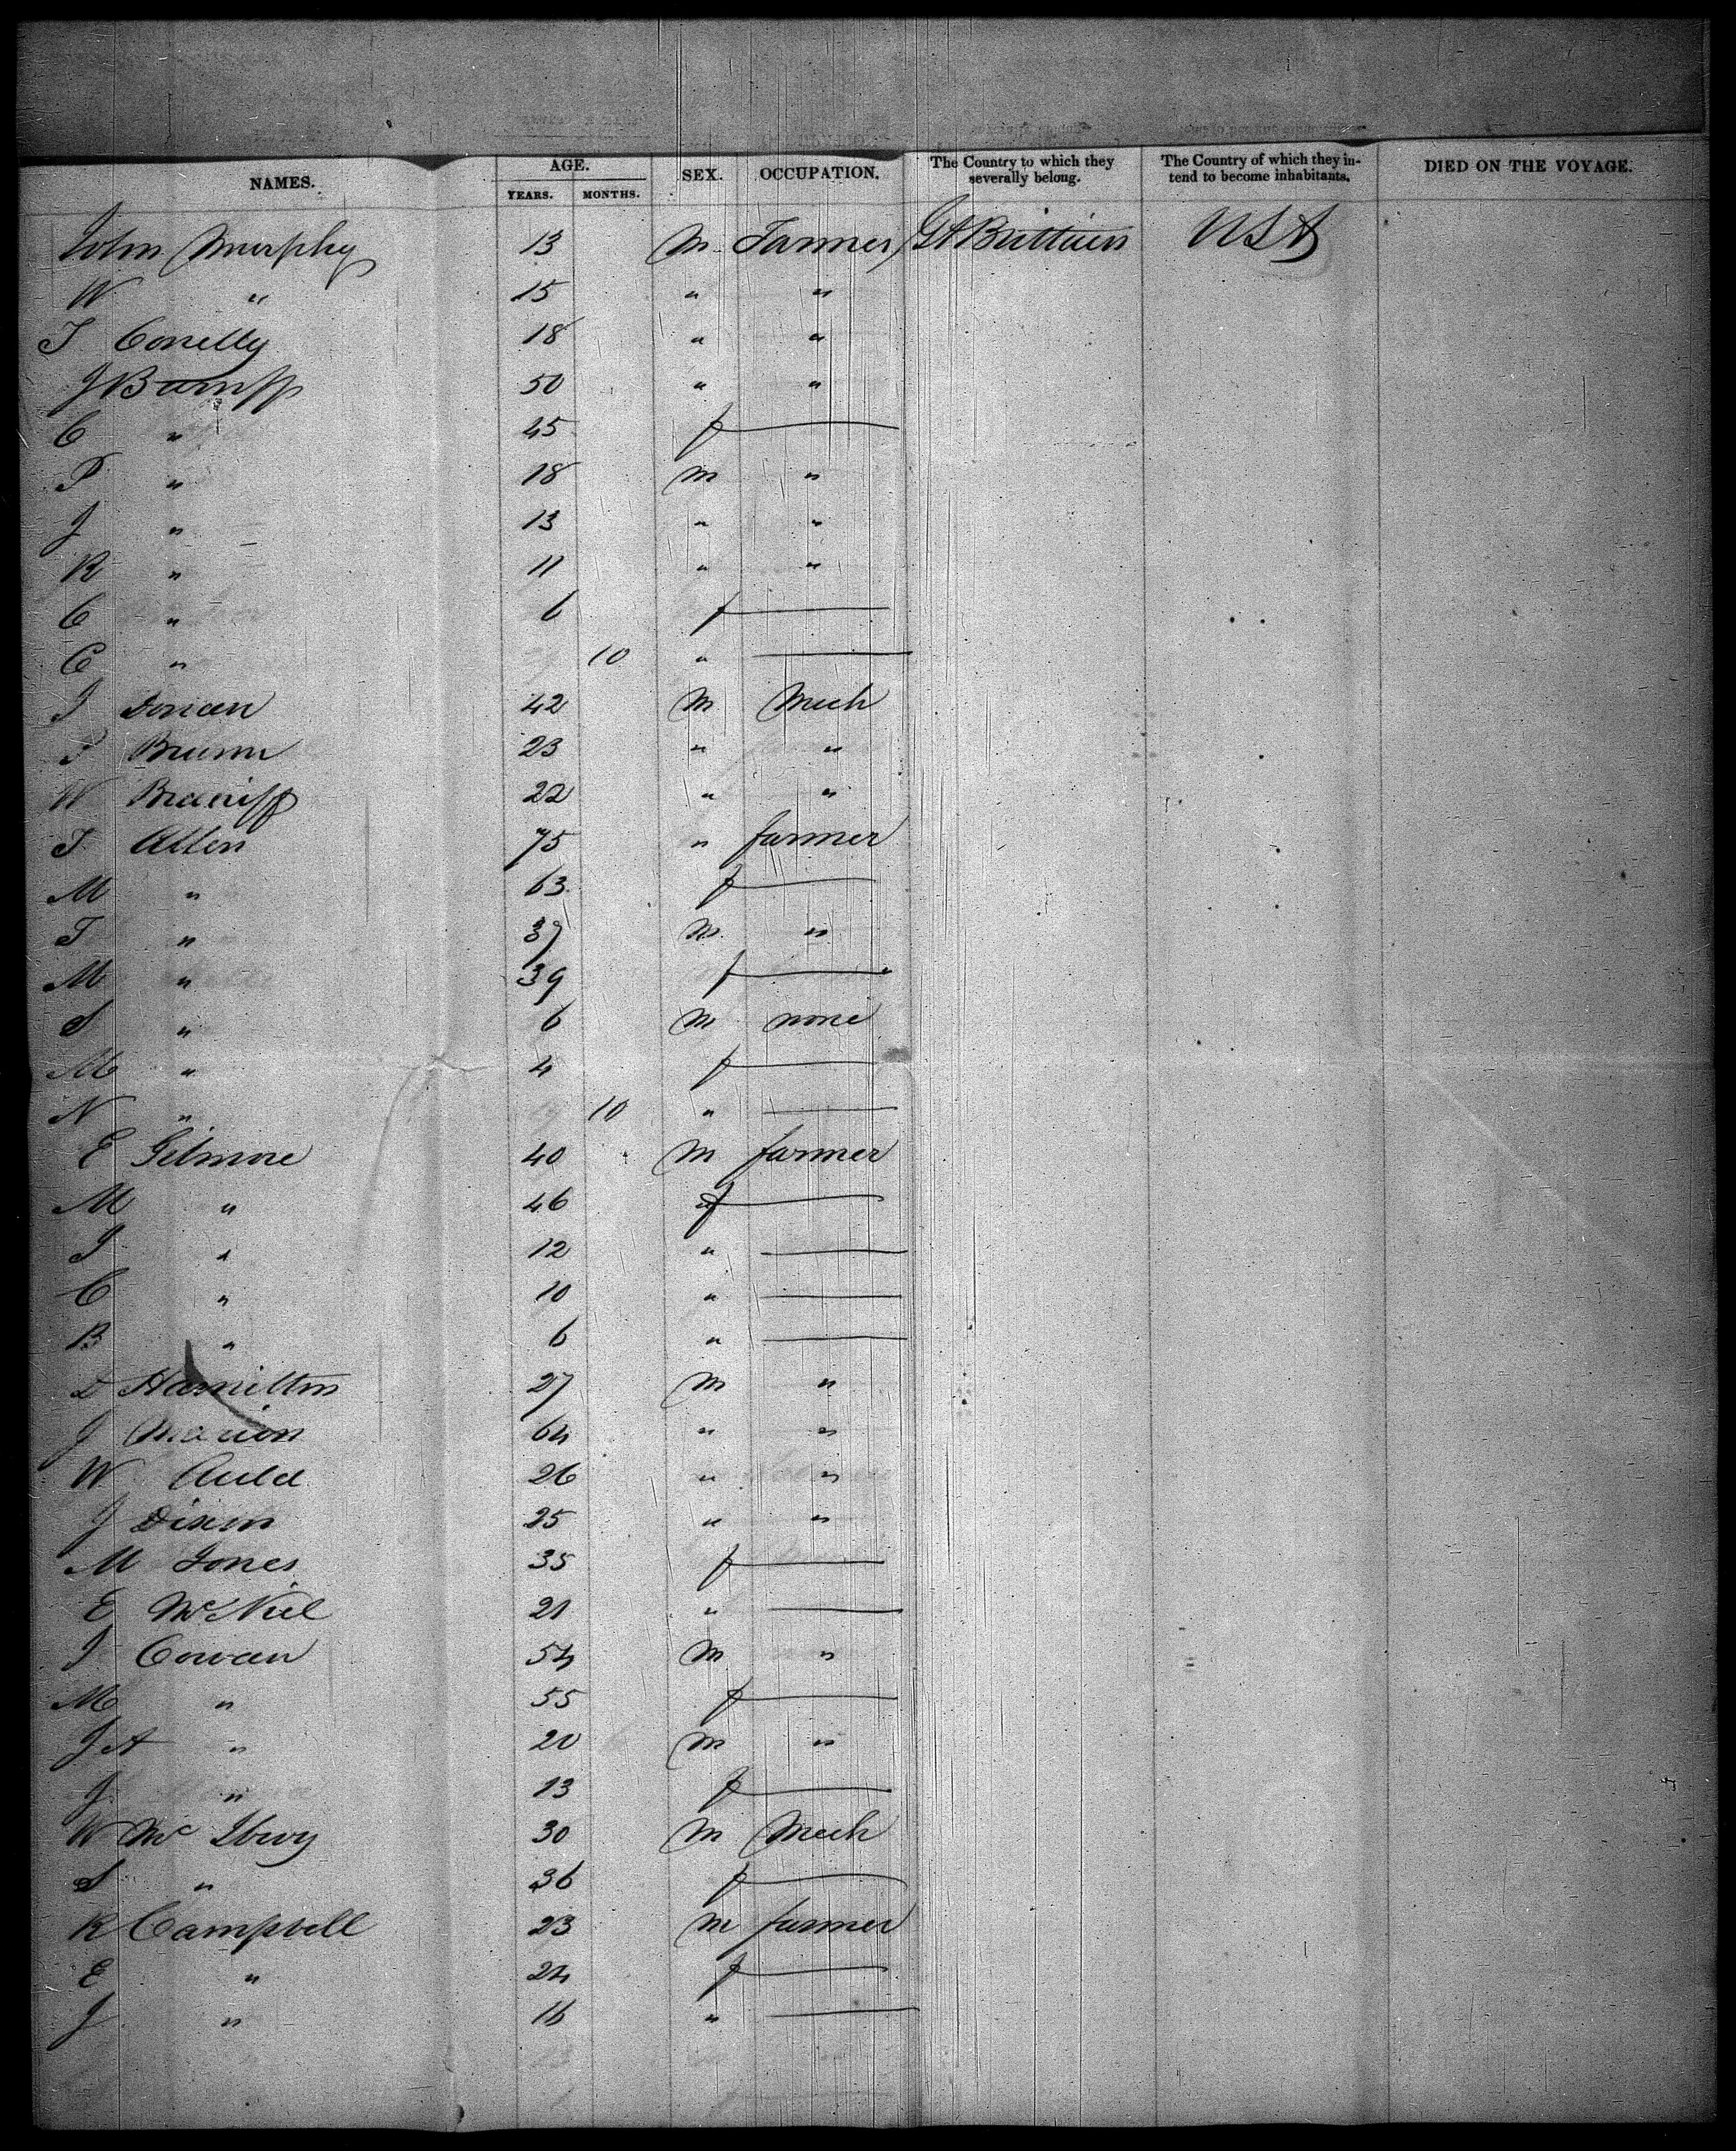 NAMES. AGE. YEARS. MONTHS. SEX. OCCUPATION. The Country to which they severally belong. The Country of which they intend to become inhabitants. DIED ON THE VOYAGE.
John Murphy 13 M Farmer Gt Brittain USA
W " 15 " "
T Conelly 18 " "
J 50 " "
C " 45 f —
P " 18 M "
J " 13 " "
R " 11 " "
C " 6 f —
C " 10 " —
J Dorian 42 M Mech
23 " "
W Braniff 22 " "
T Allen 75 " farmer
M " 63 f —
T " 37 M "
M " 39 f —
S " 6 M none
M " 4 f —
N " 10 " —
E Gilmore 40 M farmer
M " 46 f —
J " 12 " —
C " 10 " —
B " 6 " —
D Hamilton 27 M "
J Marion 64 " "
W Auld 26 " "
J Dixon 25 " "
M Jones 35 f —
E McNiel 21 " —
J Cowan 54 M "
M " 55 f —
J A " 20 M "
J " 13 f —
W Mc 30 M Mech
S " 36 f —
R Campbell 23 M farmer
E " 24 f —
J " 16 " —